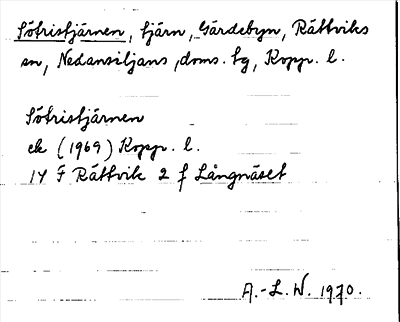 Sötristjärnen, tjärn, Gärdebyn, Rättviks
sn, Nedansiljans doms. tg, Kopp. l.
Sötristjärnen
ek (1969) Kopp. l.
14 F Rättvik 2 f Långnäset
A.-L. W. 1970.